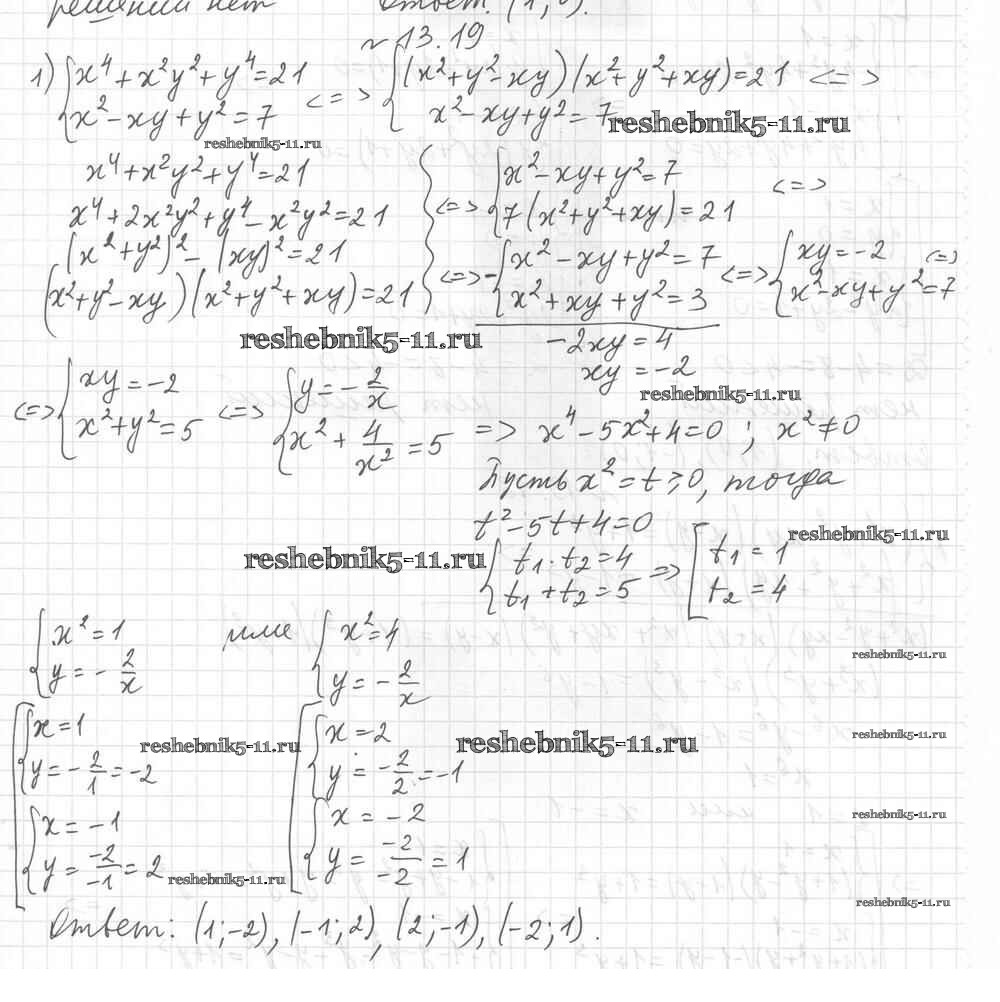 решений нет Ответ: (1; 0).
~13.19
1) {x⁴ + x²y² + y⁴ = 21 <=> {(x² + y² - xy)(x² + y² + xy) = 21 <=>
{x² - xy + y² = 7 {x² - xy + y² = 7
reshebnik5-11.ru reshebnik5-11.ru
x⁴ + x²y² + y⁴ = 21 } <=> {x² - xy + y² = 7 <=>
x⁴ + 2x²y² + y⁴ - x²y² = 21 {7(x² + y² + xy) = 21
(x² + y²)² - (xy)² = 21 <=> - {x² - xy + y² = 7 <=> {xy = -2 <=>
(x² + y² - xy)(x² + y² + xy) = 21 {x² + xy + y² = 3 {x² - xy + y² = 7
reshebnik5-11.ru -2xy = 4
xy = -2
reshebnik5-11.ru
<=> {xy = -2 <=> {y = -2/x
{x² + y² = 5 {x² + 4/x² = 5 => x⁴ - 5x² + 4 = 0 ; x² ≠ 0
Пусть x² = t ⩾ 0, тогда
t² - 5t + 4 = 0
reshebnik5-11.ru
reshebnik5-11.ru {t₁ · t₂ = 4 => [t₁ = 1
{t₁ + t₂ = 5 [t₂ = 4
{x² = 1 или {x² = 4
{y = -2/x {y = -2/x
reshebnik5-11.ru
[{x = 1 [{x = 2
reshebnik5-11.ru reshebnik5-11.ru reshebnik5-11.ru
{y = -2/1 = -2 {y = -2/2 = -1
{x = -1 {x = -2
reshebnik5-11.ru
{y = -2/-1 = 2 {y = -2/-2 = 1
reshebnik5-11.ru
reshebnik5-11.ru
Ответ: (1; -2), (-1; 2), (2; -1), (-2; 1).